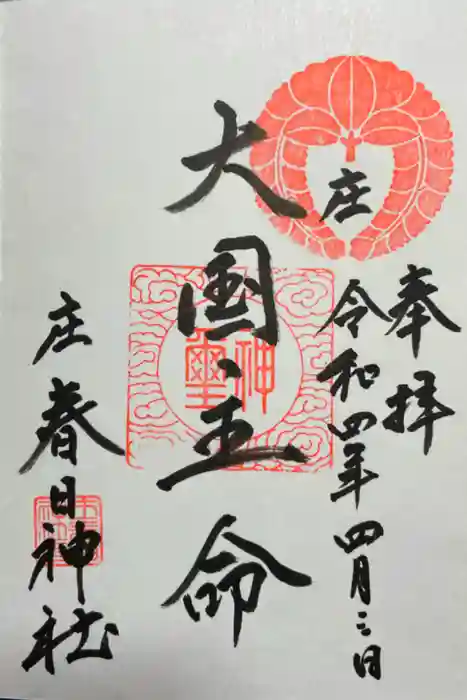 奉拝
庄
令和四年四月三日
大国主命
神璽
庄春日神社